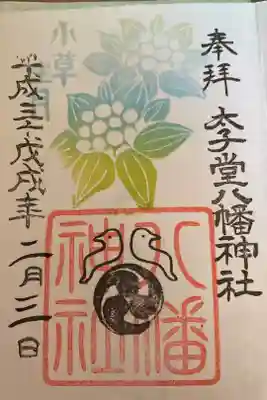 奉拝
太子堂八幡神社
八幡
神社
小草
二月
平成三十戊戌年二月三日